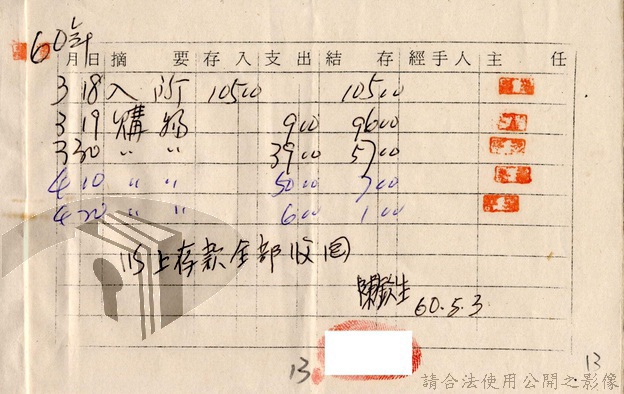 60年
月 日 摘要 存入 支出 結存 經手人 主任
3 18 入所 105.00 105.00
3 19 購物 9.00 96.00
3 30 〃 〃 39.00 57.00
4 10 〃 〃 50.00 7.00
4 20 〃 〃 6.00 1.00
以上存款全部收回
陳欽生 60.5.3
13
13
請合法使用公開之影像